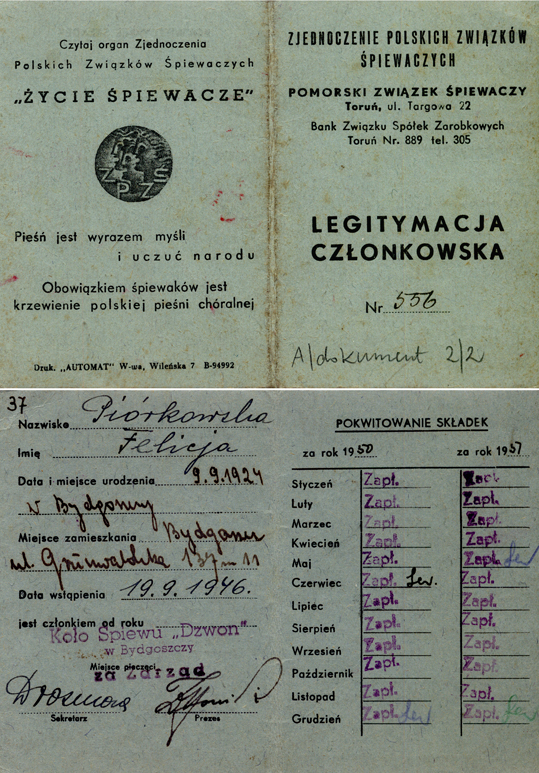 Czytaj organ Zjednoczenia
Polskich Związków Śpiewaczych
„ŻYCIE ŚPIEWACZE”
ZPZŚ
Pieśń jest wyrazem myśli
i uczuć narodu
Obowiązkiem śpiewaków jest
krzewienie polskiej pieśni chóralnej
Druk. „AUTOMAT” W-wa, Wileńska 7 B-94992
ZJEDNOCZENIE POLSKICH ZWIĄZKÓW
ŚPIEWACZYCH
POMORSKI ZWIĄZEK ŚPIEWACZY
Toruń, ul. Targowa 22
Bank Związku Spółek Zarobkowych
Toruń Nr. 889 tel. 305
LEGITYMACJA
CZŁONKOWSKA
Nr 556
A/dokument 2/2
37
Nazwisko Piórkowska
Imię Felicja
Data i miejsce urodzenia 9.9.1924
w Bydgoszczy
Miejsce zamieszkania Bydgoszcz
ul. Grunwaldzka 137 m 11
Data wstąpienia 19.9.1946.
jest członkiem od roku
Koło Śpiewu „Dzwon”
w Bydgoszczy
Miejsce pieczęci
za Zarząd
Sekretarz Prezes
POKWITOWANIE SKŁADEK
za rok 1950 za rok 1951
Styczeń Zapł. Zapł.
Luty Zapł. Zapł.
Marzec Zapł. Zapł.
Kwiecień Zapł. Zapł.
Maj Zapł. Zapł.
Czerwiec Zapł. Zapł.
Lipiec Zapł. Zapł.
Sierpień Zapł. Zapł.
Wrzesień Zapł. Zapł.
Październik Zapł. Zapł.
Listopad Zapł. Zapł.
Grudzień Zapł. Zapł.